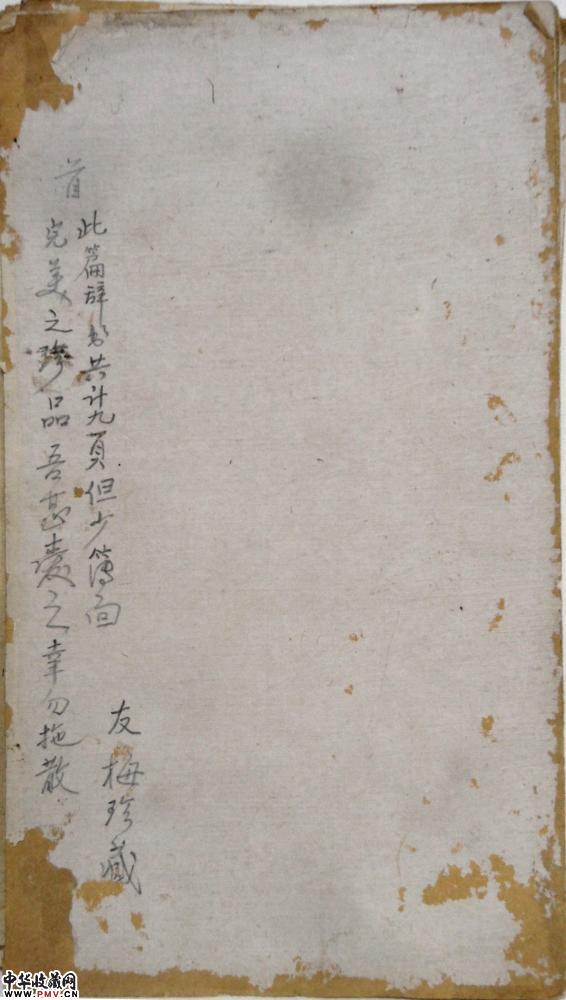 友梅珍藏
此篇辞书共计九頁但少簿面
完美之珍品吾甚爱之幸勿拖散
首
中华收藏网
www.PMV.CN